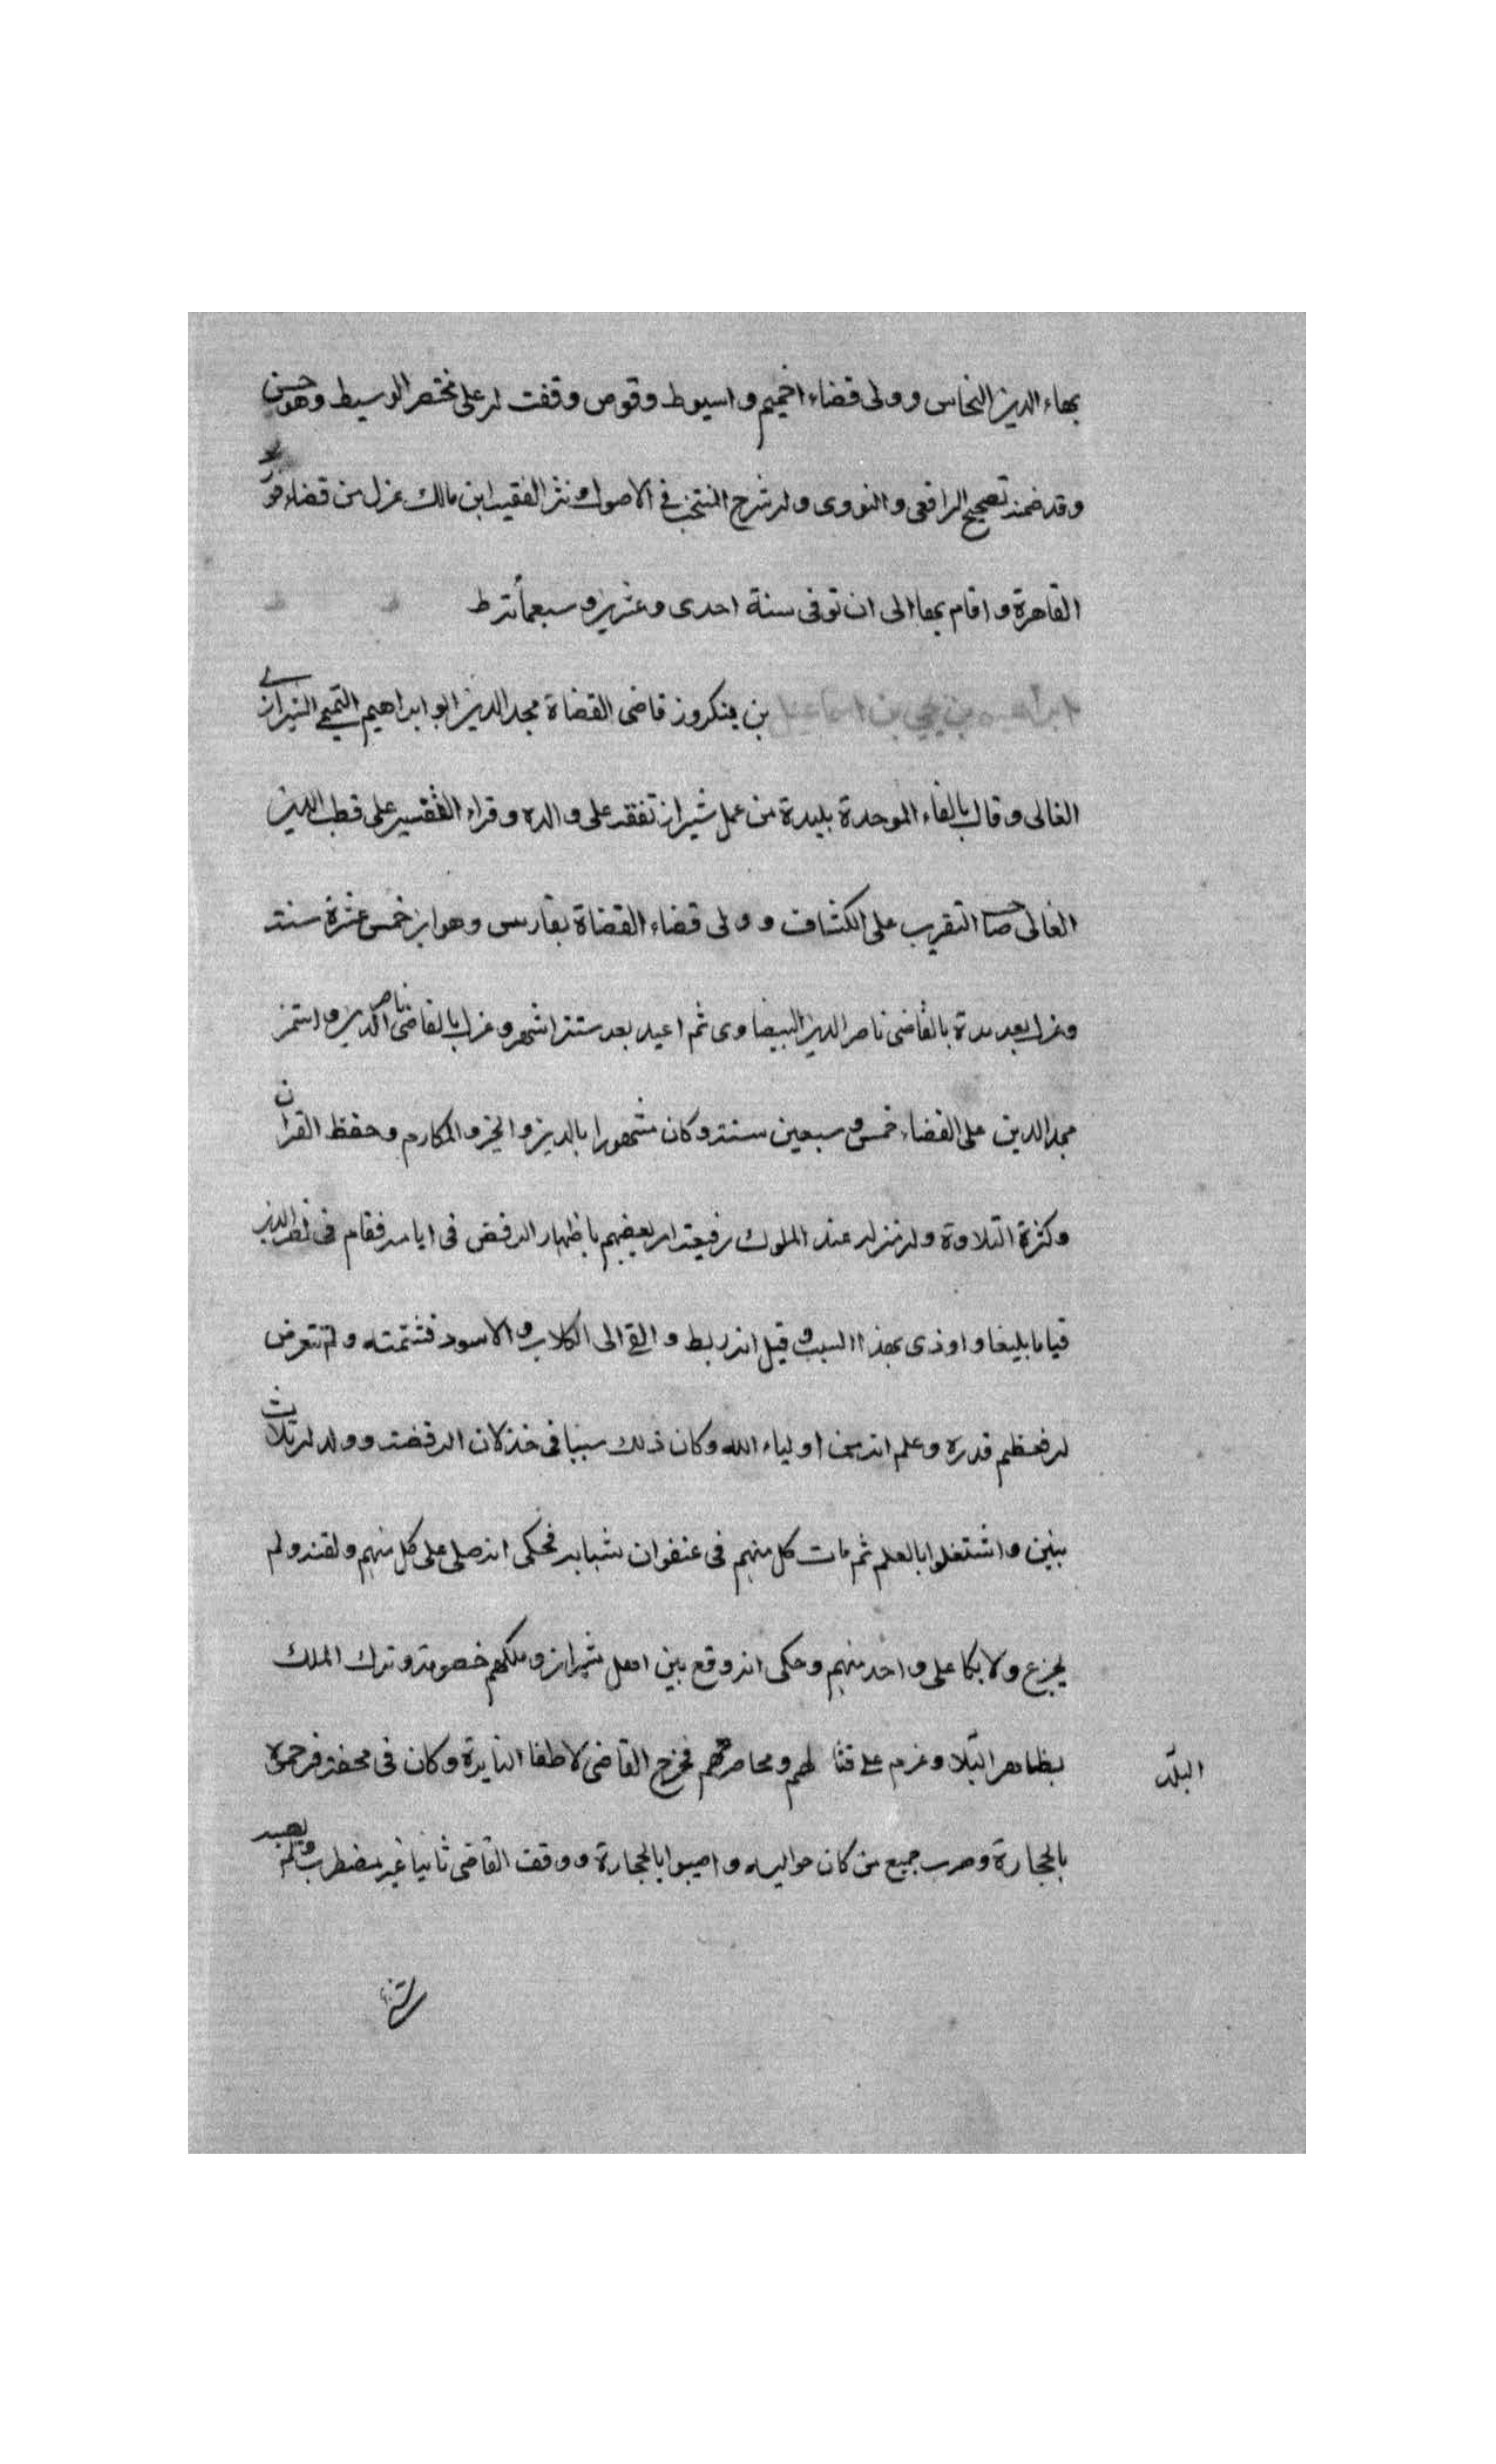 بهاء الدين النحاس وولى قضاء اخميم واسيوط وقوص وقفت له على مختصر الوسيط وهو حسن
وقد ضمنه تصحيح الرافعى والنووى وله شرح المنتخب فى الاصول ونثر الفقيه ابن مالك عزل من قضاء قوص
القاهرة واقام بها الى ان توفى سنة احدى وعشرين وسبعمأته ط
ابراهيم بن يحيى بن اسماعيل بن ينكروز قاضى القضاة مجد الدين ابو ابراهيم التميمى الشيرازى
الفالى وقال بالفاء الموحدة بليدة من عمل شيراز تفقه على والده وقراء التفسير على قطب الدين
الفالى صاحب التقريب على الكشاف وولى قضاء القضاة بفارس وهو ابن خمس عشرة سنة
وعزل بعد مدة بالقاضى ناصر الدين البيضاوى ثم اعيد بعد ستة اشهر وعزل بالقاضى ناصر الدين واستمر
مجد الدين على القضاء خمس وسبعين سنة وكان مشهورا بالدين والخير والمكارم وحفظ القران
وكثرة التلاوة وله منزله عند الملوك رفيعة امر بعضهم باظهار الرفض فى ايامه فقام فى نصر الدين
قياما بليغا واوذى بهذا السبب وقيل انه ربط والقى الى الكلاب والاسود فشمته ولم تتعرض
له فعظم قدره وعلم انه من اولياء الله وكان ذلك سببا فى خذلان الرفضة وولد له ثلاث
بنين واشتغلوا بالعلم ثم مات كل منهم فى عنفوان شبابه فحكى انه صلى على كل منهم ولقنه ولم
يجزع ولا بكا على واحد منهم وحكى انه وقع بين اهل شيراز وملكهم خصومة وترك الملك
بظاهر البلا وعزم على قتا لهم ومحاصرتهم فخرج القاضى لاطفا النايرة وكان فى محفة فرجموه
البلد
بالحجارة وهرب جميع من كان حواليه واصيبوا بالحجارة ووقف القاضى ثانيا غير مضطرب ولم يصبه